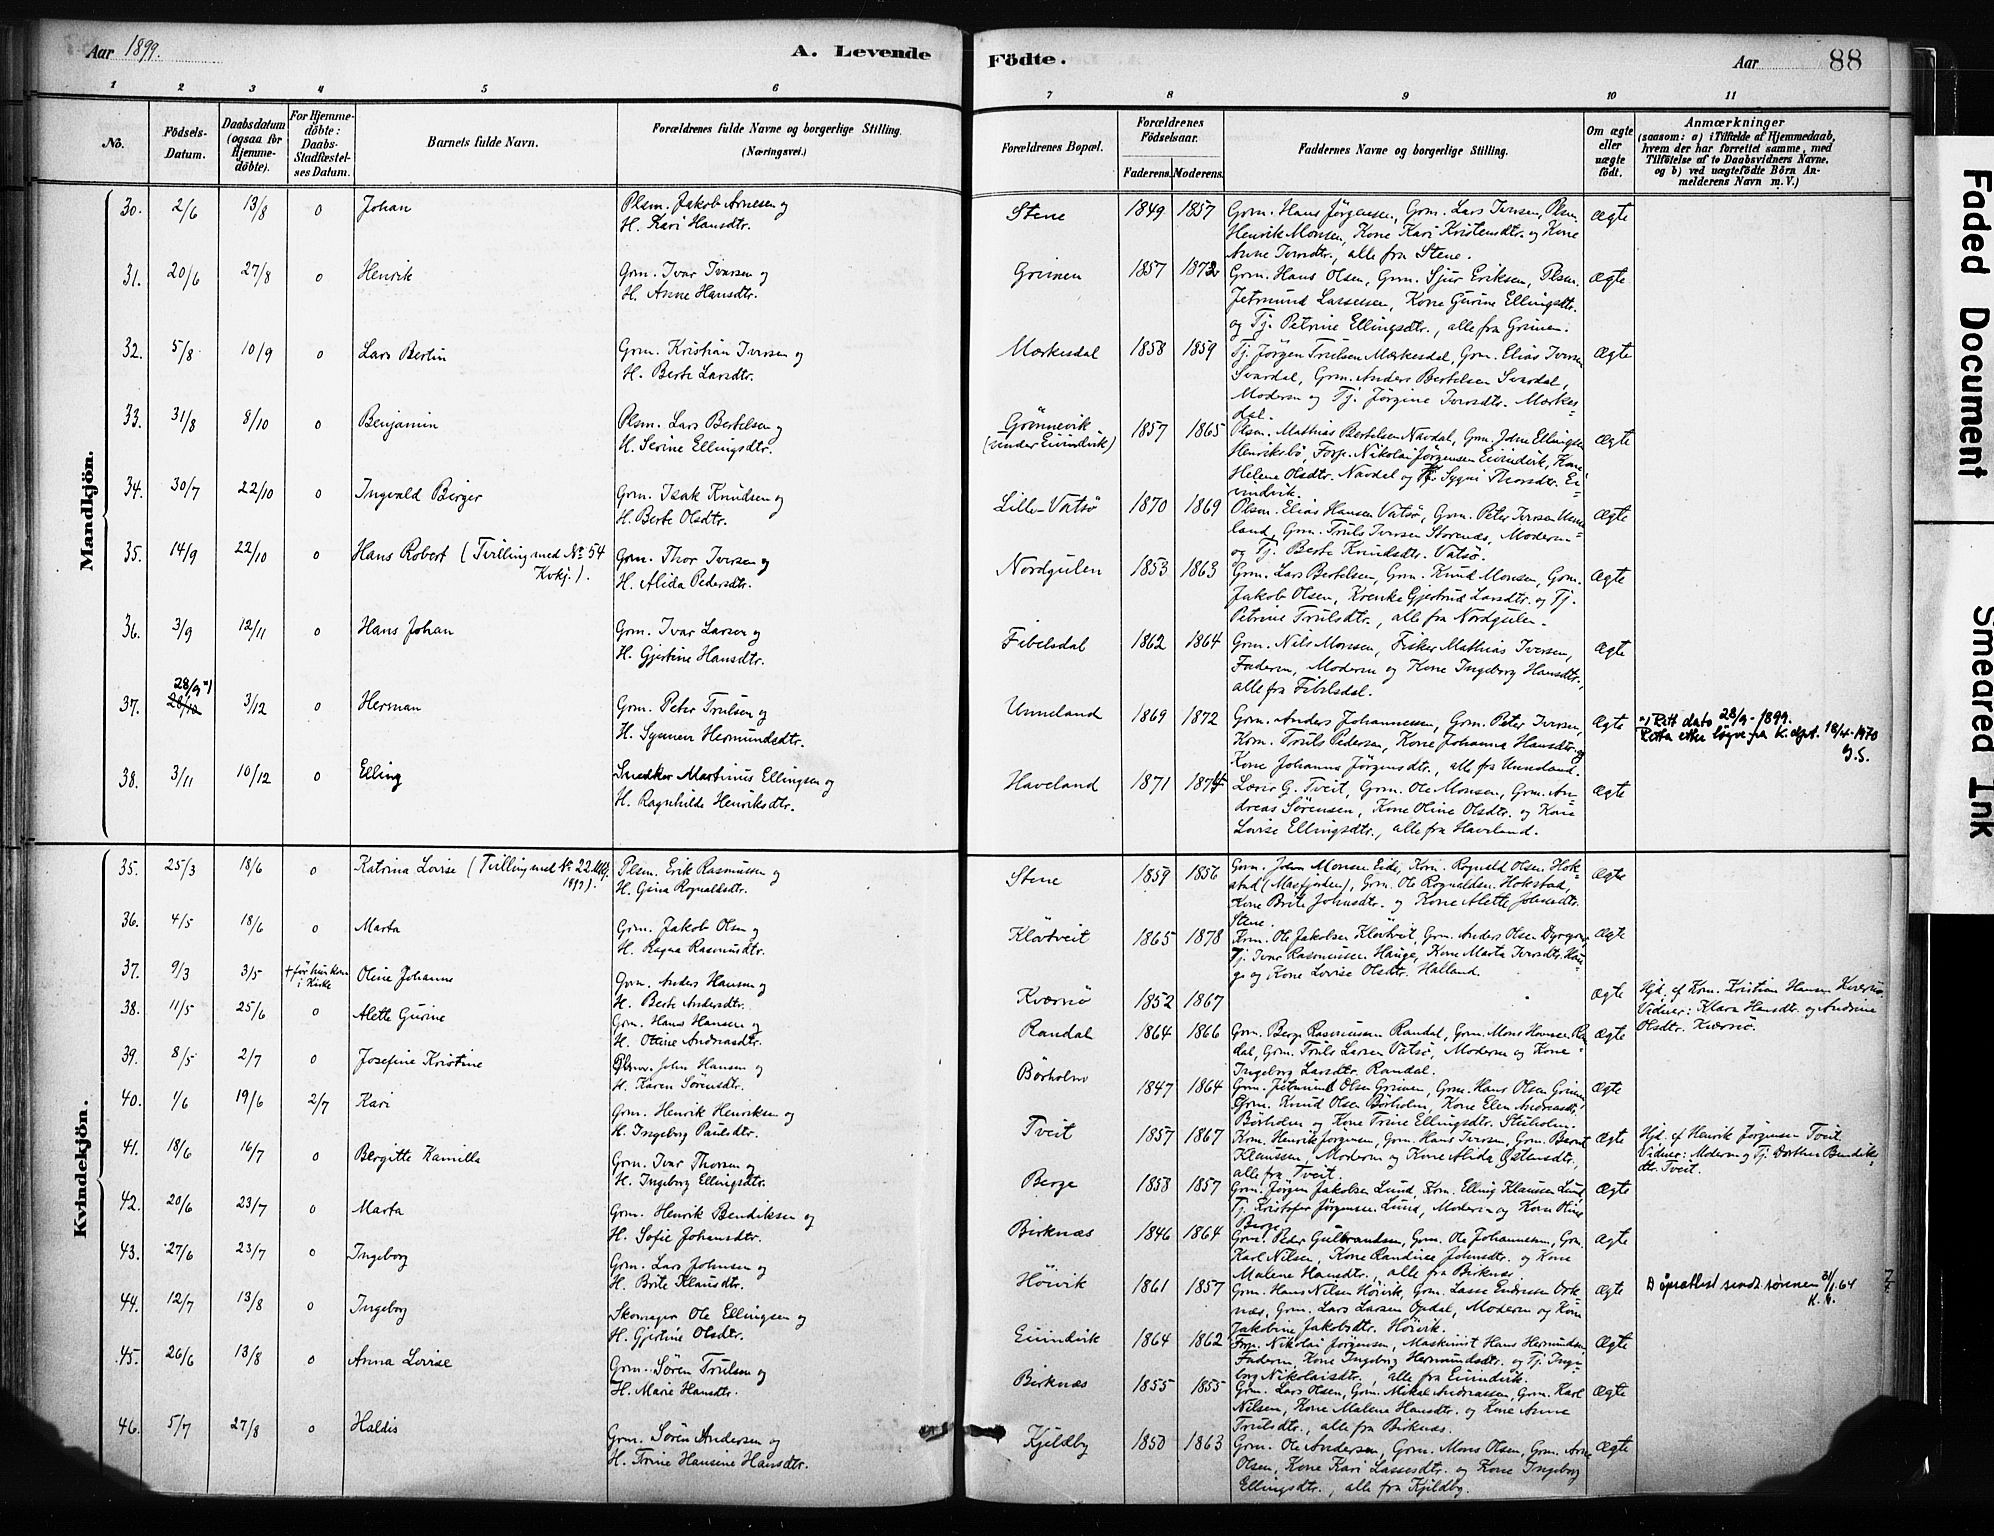 Aar 1899.
A. Levende
Födte.
Aar
88
1 2 3 4 5 6 7 8 9 10 11
No.
Födsels-Datum.
Daabsdatum (ogsaa för Hjemmedöbte).
For Hjemmedöbte: Daabs-Stadfæstelses Datum.
Barnets fulde Navn.
Forældrenes fulde Navne og borgerlige Stilling.
(Næringsvei.)
Forældrenes Bopæl.
Forældrenes Födselsaar.
Faderens. Moderens.
Faddernes Navne og borgerlige Stilling.
Om ægte eller uægte födt.
Anmærkninger
(saasom: a) i Tilfælde af Hjemmedaab, hvem der har forrettet samme, med Tilföielse af to Daabsvidners Navne, og b) ved uægtefödte Börn Anmelderens Navn m. V.)
Mandkjön.
30. 2/6 13/8 0 Johan Plsm. Jakob Arnesen og
H. Kari Hansdtr.
Stene 1849 1857 Grm. Hans Jørgensen, Grm. Lars Iversen, Plsm.
Henrik Monsen, Kone Kari Kristensdtr. og Kone
Anne Iversdtr., alle fra Stene.
Ægte
31. 20/6 27/8 0 Henrik Grm. Ivar Iversen og
H. Anne Hansdtr.
Grinen 1857 1872 Grm. Hans Olsen, Grm. Sjur Eriksen, Plsm.
Jetmund Lassesen, Kone Gurine Ellingsdtr.
og Tj. Petrine Ellingsdtr., alle fra Grinen.
Ægte
32. 5/8 10/9 0 Lars Bertin Grm. Kristian Iversen og
H. Berte Larsdtr.
Mærkesdal 1858 1859 Tj. Jørgen Trulsen Mærkesdal, Grm. Elias Iversen
Svardal, Grm. Anders Bertelsen Svardal,
Moderen og Tj. Jørgine Iversdtr. Mærkesdal.
Ægte
33. 31/8 8/10 0 Benjamin Plsm. Lars Bertelsen og
H. Serine Ellingsdtr.
Grönnevik
(under Eivindvik) 1857 1865 Plsm. Mathias Bertelsen Navdal, Grm. John Ellingsen
Henriksbö, Forp. Nikolai Jørgensen Eivindvik, Kone
Helene Olsdtr. Navdal og Tj. Sygni Thorsdtr. Eivindvik.
Ægte
34. 30/7 22/10 0 Ingvald Birger Grm. Isak Knudsen og
H. Berte Olsdtr.
Lille-Vatsö 1870 1869 Plsm. Elias Hansen Vatsö, Grm. Peter Iversen Unneland,
Grm. Truls Iversen Storenæs, Moderen
og Tj. Berte Knudsdtr. Vatsö.
Ægte
35. 14/9 22/10 0 Hans Robert (Tvilling med No 54
Kvkj.).
Grm. Thor Iversen og
H. Alida Pedersdtr.
Nordgulen 1853 1863 Grm. Lars Bertelsen, Grm. Knud Monsen, Grm.
Jakob Olsen, Kvenke Gjertrud Larsdtr. og Tj.
Petrine Trulsdtr., alle fra Nordgulen.
Ægte
36. 3/9 12/11 0 Hans Johan Grm. Ivar Larsen og
H. Gjertine Hansdtr.
Fibelsdal 1862 1864 Grm. Nils Monsen, Fisker Mathias Iversen,
Faderen, Moderen og Kone Ingeborg Hansdtr.,
alle fra Fibelsdal.
Ægte
37. 28/9 *) 28/10 3/12 0 Herman Grm. Peter Trulsen og
H. Synneve Hermundsdtr.
Unneland 1869 1872 Grm. Anders Johannessen, Grm. Peter Iversen,
Krm. Truls Pedersen, Kone Johanna Hansdtr. og
Kone Johanna Jørgensdtr., alle fra Unneland.
Ægte
*) Rett dato 28/9-1899.
Retta etter løyve frå K.dept. 18/4-1970
G.S.
38. 3/11 10/12 0 Elling Snedker Martinus Ellingsen og
H. Ragnhilde Henriksdtr.
Haveland 1871 1874 Lærer G. Tveit, Grm. Ole Monsen, Grm. Andreas
Sørensen, Kone Oline Olsdtr. og Kone
Lovise Ellingsdtr., alle fra Haveland.
Ægte
Kvindekjön.
35. 25/3 18/6 0 Katrina Lovise (Tvilling med No 22 Mkj.
1899).
Plsm. Erik Rasmussen og
H. Gsina Rognaldsdtr.
Stene 1859 1856 Grm. John Monsen Eide, Krm. Rognald Olsen Hokstad
(Masfjorden), Grm. Ole Rognaldsen Hokstad,
Kone Brite Johnsdtr. og Kone Alette Johnsdtr.
Stene.
Ægte
36. 4/5 18/6 0 Marta Grm. Jakob Olsen og
H. Ragna Rasmusdtr.
Klövtveit 1865 1878 Krm. Ole Jakobsen Klövtveit, Grm. Anders Olsen
Tj. Ivar Rasmussen Hauge, Kone Marta Iversdtr. Hauge
og Kone Lovise Olsdtr. Halland.
Ægte
37. 9/3 3/5 + før hun kom
i Kirke
Oline Johanne Grm. Anders Hansen og
H. Berte Andersdtr.
Kværnö 1852 1867 Ægte
Hjd. af Krm. Kristian Hansen Kværnö.
Vidner: Klara Hansdtr. og Andrine
Olsdtr. Kværnö.
38. 11/5 25/6 0 Alette Gurine Grm. Hans Hansen og
H. Oline Andreasdtr.
Randal 1864 1866 Grm. Berge Rasmussen Randal, Grm. Mons Hansen Randal,
Grm. Truls Larsen Vatsö, Moderen og Kone
Ingeborg Larsdtr. Randal.
Ægte
39. 8/5 2/7 0 Josefine Kristine Plsm. John Hansen og
H. Karen Sörensdtr.
Börholm 1847 1864 Grm. Jetmund Olsen Grinen, Grm. Hans Olsen Grinen,
Grm. Knud Olsen Börholm, Kone Elen Andreasdtr.
Börholm og Kone Trine Ellingsdtr. Stuholm.
Ægte
40. 1/6 19/6 2/7 Kari Grm. Henrik Henriksen og
H. Ingeborg Paulsdtr.
Tveit 1857 1867 Krm. Henrik Jørgensen, Grm. Hans Iversen, Grm. Bernt
Klaussen, Moderen og Kone Alida Østensdtr.,
alle fra Tveit.
Ægte
Hjd. af Henrik Jørgensen Tveit.
Vidner: Moderen og Tj. Dorthea Bendiksdtr.
Tveit.
41. 18/6 16/7 0 Bergitte Kamilla Grm. Ivar Thorsen og
H. Ingeborg Ellingsdtr.
Berge 1858 1857 Grm. Jørgen Jakobsen Lund, Krm. Elling Klaussen Lund,
Tj. Kristofer Jørgensen Lund, Moderen og Kone
Berge.
Ægte
42. 20/6 23/7 0 Marta Grm. Henrik Bendiksen og
H. Sofie Johansdtr.
Birknæs 1846 1864 Grm. Peder Gulbrandsen, Grm. Ole Johannesen, Grm.
Karl Nilsen, Kone Randine Johnsdtr. og Kone
Malene Hansdtr., alle fra Birknæs.
Ægte
43. 27/6 23/7 0 Ingeborg Grm. Lars Johnsen og
H. Brite Klausdtr.
Höivik 1861 1857 Grm. Hans Nilsen Höivik, Grm. Lasse Endresen Orknæs,
Grm. Lars Larsen Opdal, Moderen og Kone
Jakobine Jakobsdtr. Höivik.
Ægte
31/1.64
44. 12/7 13/8 0 Ingeborg Skomager Ole Ellingsen og
H. Gjertine Olsdtr.
Eivindvik 1864 1862 Forp. Nikolai Jørgensen, Maskinist Hans Hermundsen,
Faderen, Kone Ingeborg Hermundsdtr. og Tj. Ingeborg
Nikolaisdtr., alle fra Eivindvik.
Ægte
45. 26/6 13/8 0 Anna Lovise Grm. Sören Trulsen og
H. Marie Hansdtr.
Birknæs 1855 1855 Grm. Lars Olsen, Grm. Mikal Andreassen, Grm. Karl
Nilsen, Kone Malene Hansdtr. og Kone Anne
Trulsdtr., alle fra Birknæs.
Ægte
46. 5/7 27/8 0 Haldis Grm. Sören Andersen og
H. Trine Hansine Hansdtr.
Kjeldby 1850 1863 Grm. Ole Andersen, Grm. Mons Olsen, Grm. Arne
Olsen, Kone Kari Lassesdtr. og Kone Ingeborg
Ellingsdtr., alle fra Kjeldby.
Ægte
Faded Document
Smeared Ink